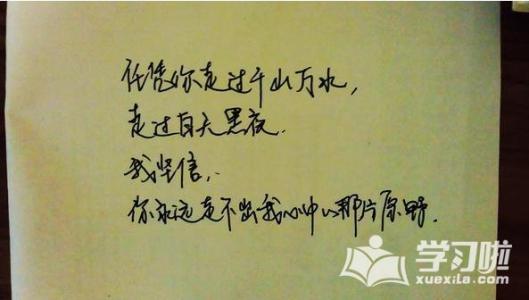 任凭你走过千山万水，
走过白天黑夜.
我坚信，.
你永远走不出我心中那片原野.
学习啦
xuexila.com